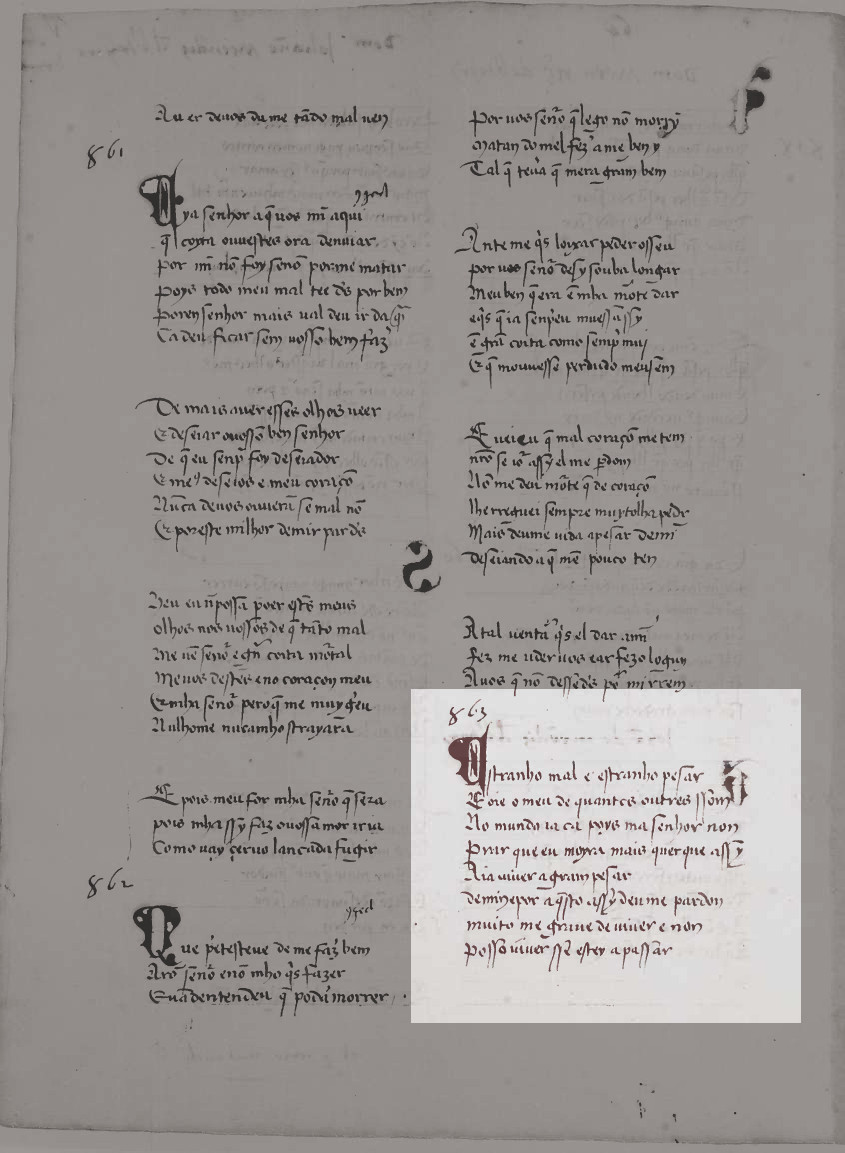 Au er deuos du me tãdo mal uen
861
A ya senhor a q̃ uos mĩ aqui
q̃ coyta ouuestes ora denuiar
Por mĩ nõ foy senõ por me matar
Poys todo meu mal tee dš por bem
Poren senhor mais ual deu ir daq̃
Ca deu ficar sem uosso bem faz̃
De mais auer esses olhos ueer
E deseiar o uosso ben senhor
De q̃ eu senp̃ foy deseiador
E me9 deseios e meu coraçõ
Nũca deuos ouuerã se mal nõ
E por este milhor demir par dš
olhos nos uossos de q̃ tãto mal
Me uẽ señor e gr̃ coita mortal
Me uos destes eno coraçon meu
E mha señor pero q̃ me muy greu
Nulhome nucamho strayara
E pois meu for mha señor q̃ sera
pois mhassy faz o uossa mor ir ia
Como uay çeruo lançada fugir
862
Que p̃testeue de me faz̃ bem
E uã dentendeu q̃ podia morrer
Por uos señor q̃ logo nõ moriỹ
Matan do mel fez̃ a me ben y
Tal q̃ teria q̃ mera gram bem
Ante me q̃s leixar peder osseu
por uos señor desy souba longar
Meu ben q̃ era ẽ mha morte dar
e q̃s q̃ ia senp̃ eu uiuess assy
ẽ gr̃a coita como semp̃ uiuj
E q̃ mouuesse perdudo meu sem
E ueieu q̃ mal coraçõ me tem
Nõ me deu morte q̃ de coraçõ
lhe rroguei sempre muytolha pedr
Mais deume uida a pesar de mĩ
deseiando a q̃ mẽ pouco ten
A tal uentã q̃s el dar a mĩ
fez me uderuos e ar fezo logu y
A uos q̃ nõ dessedš
863
Estranho mal e estranho pesar
E oie o meu de quantos outros ssom
No mundo ia ca poys ma senhor non
Prar que eu moyra mais quer que assy
Aia uiuer a gram pesar
de mi ne por aq̃sto assy deu me pardon
muito me graue de uiuer e non
Posso uiuer sse estey a passar